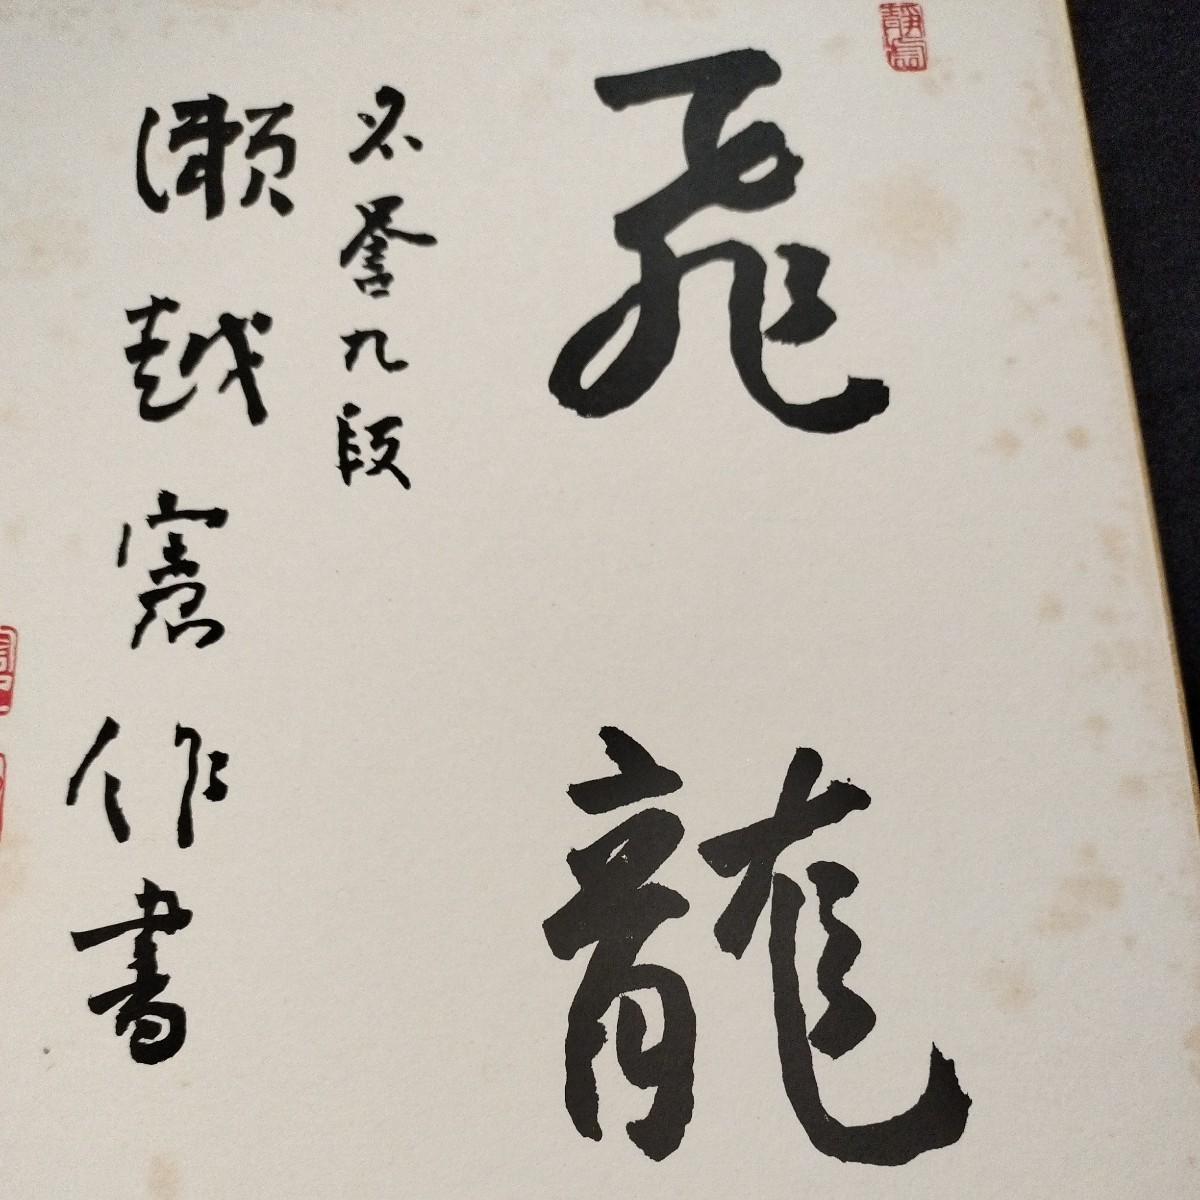 飛龍
名誉九段
瀬越憲作書